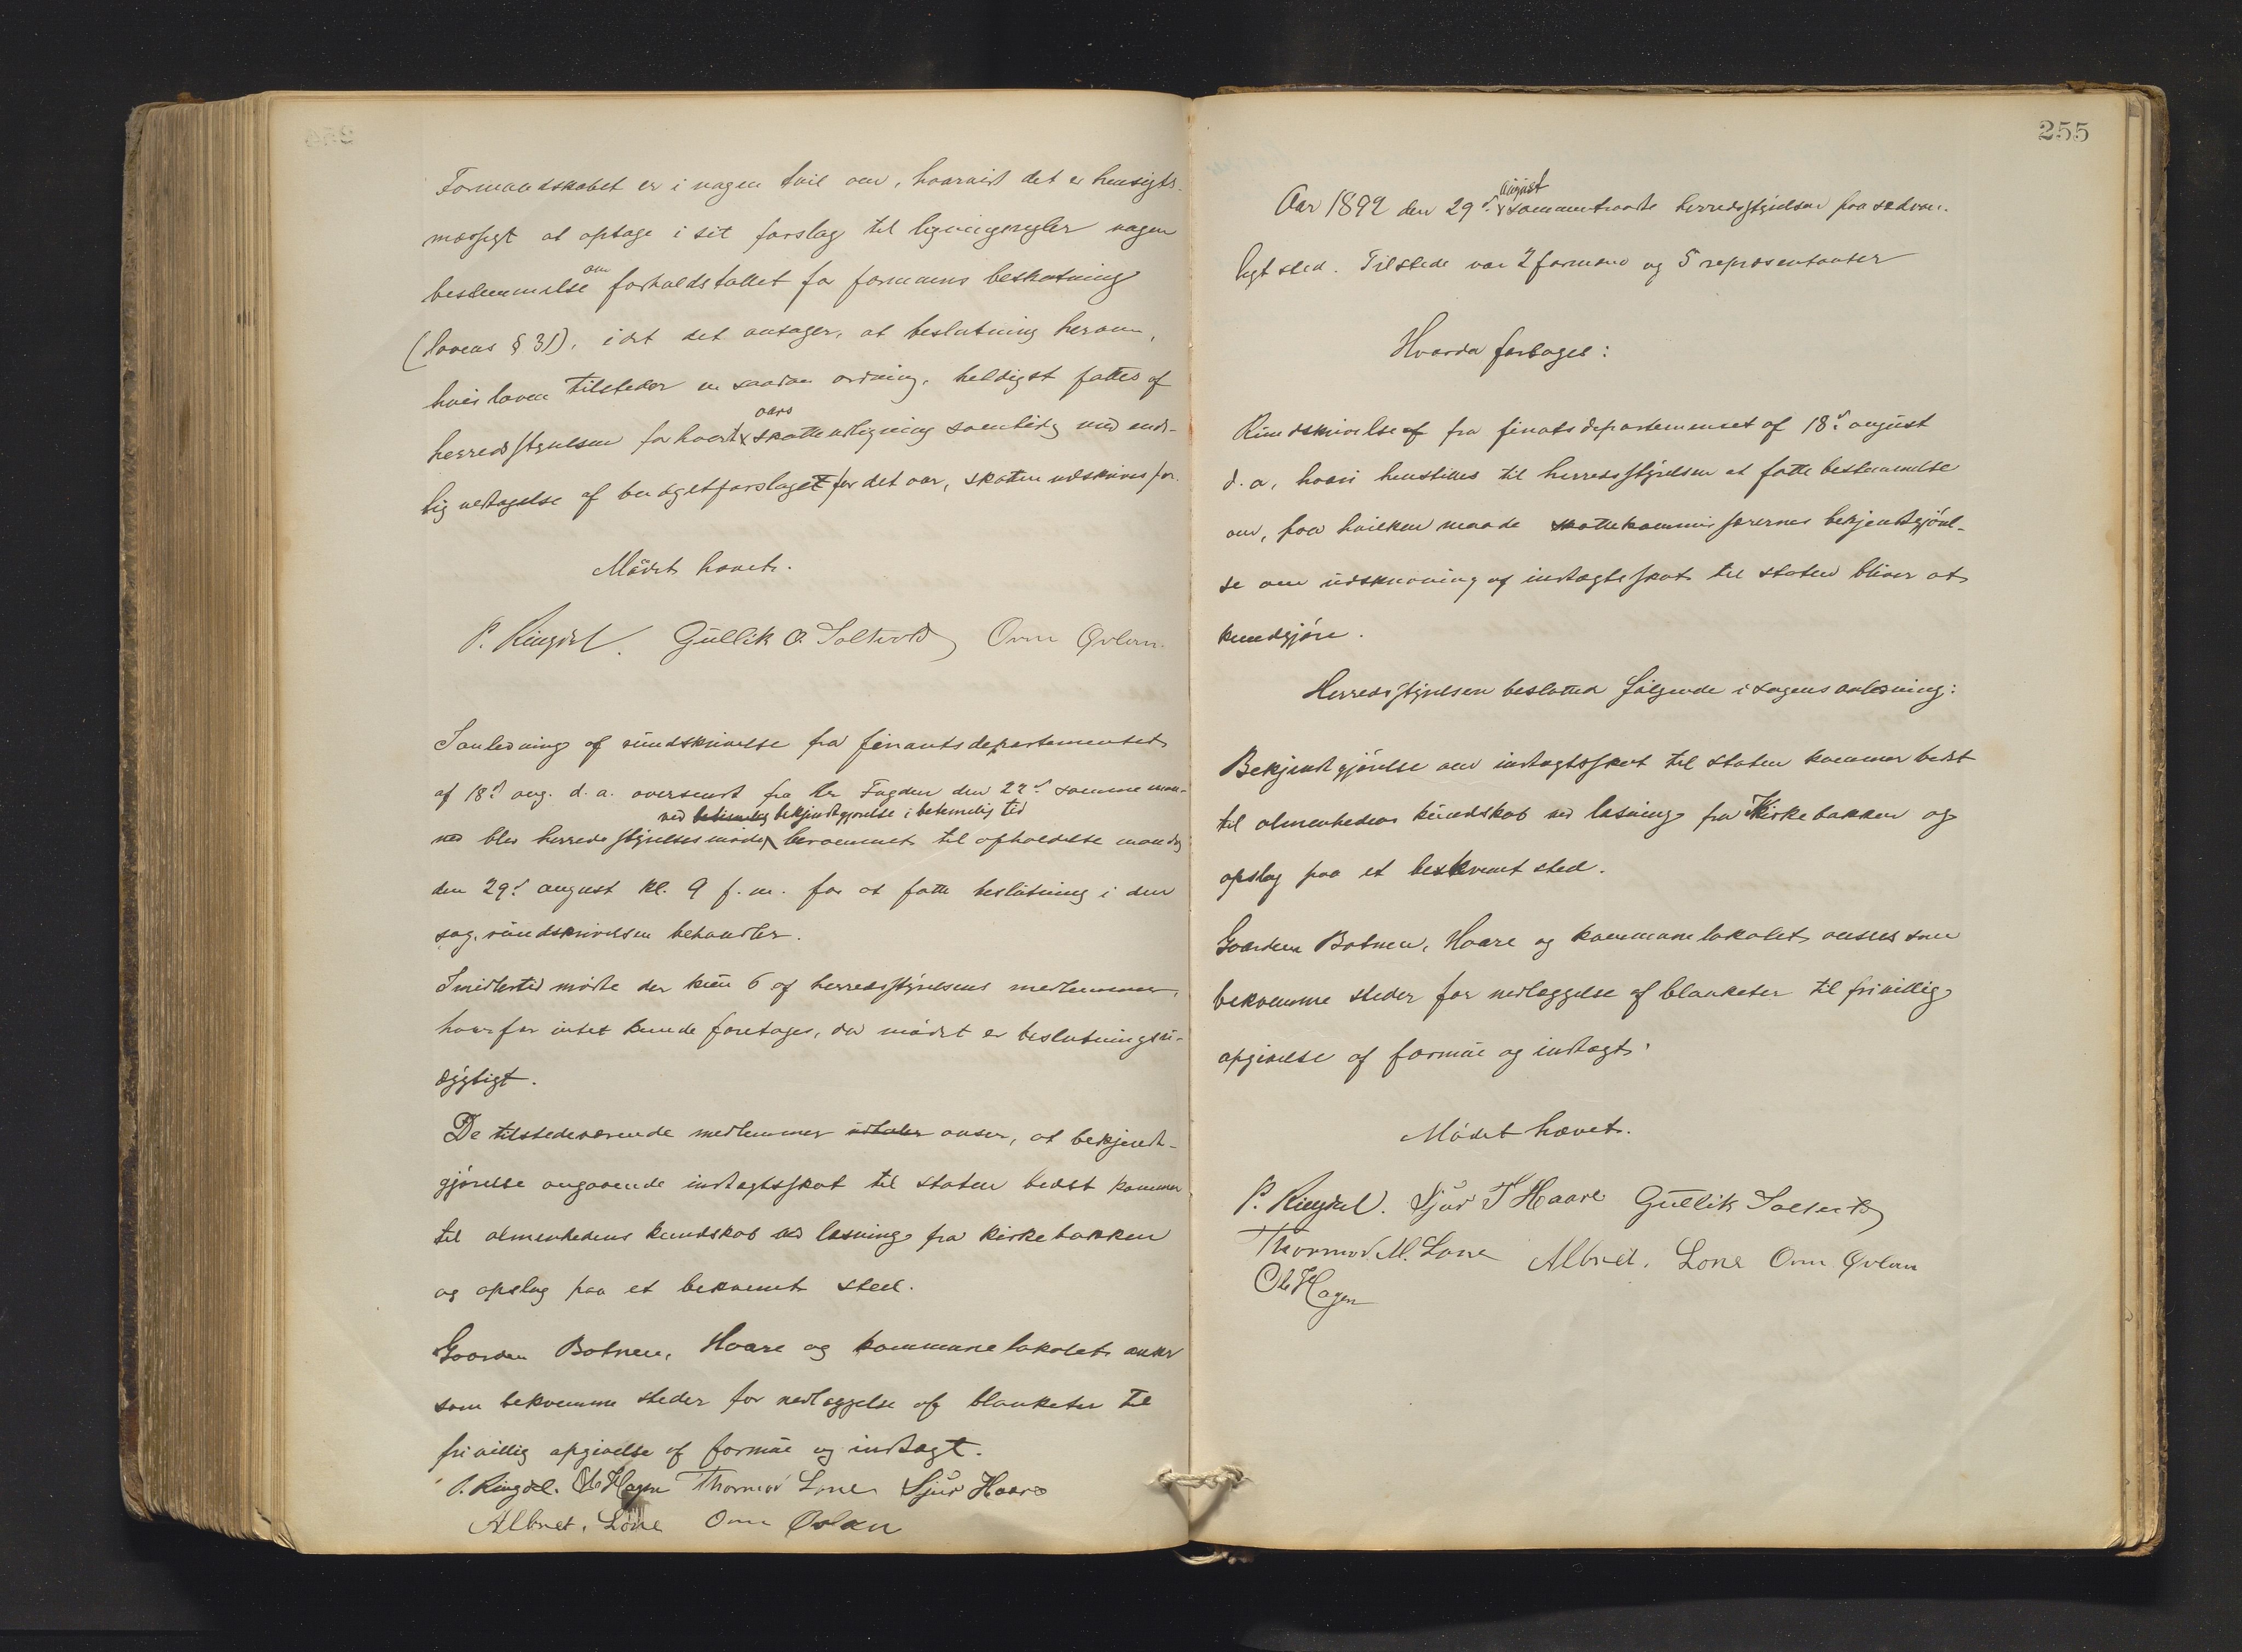 Formandskabet er i nogen tvil om, hvorvidt det er hensigts-
mæssigt at optage i sit forslag til ligningsregler nogen
bestemmelse om forholdstallet for formuens beskatning
(lovens § 31), idet det antager, at beslutning herom,
hvis loven tilsteder en saadan ordning, heldigst fattes af
herredsstyrelsen for hvert aars skatteudligning samtidig med ende-
lig vedtagelse af budgetforslaget for det aar, skatten udskrives for.
Mødet hævet.
P. Ringdal. Gullik O. Orm Øvlan.
I anledning af rundskrivelse fra finantsdepartementet
af 18d aug. d. a. oversendt fra Hr Fogden den 22d samme maa-
ned blev herredsstyrelsesmøde ved betimelig bekjendtgjørelse i betimelig tid berammet til afholdelse mandag
den 29d august kl. 9 f. m. for at fatte beslutning i den
sag, rundskrivelsen behandler.
Imidlertid mødte der kun 6 af herredsstyrelsens medlemmer,
hvorfor intet kunde foretages, da mødet er beslutningsu-
dygtigt.
De tilstedeværende medlemmer udtaler anser, at bekjendt-
gjørelse angaaende indtægtsskat til staten bedst kommer
til almenhedens kundskab ved læsning fra kirkebakken
og opslag paa et bekvemt sted.
Gaarden Botnen, Haare og kommunelokalet anser
som bekvemme steder for nedlæggelse af blanketer til
frivillig opgivelse af formue og indtægt.
P. Ringdal. Ole Hagen Thormod Lone Sjur Haare
Albret. Lone Orm Øvlan
255
Aar 1892 den 29d august sammentraadte herredsstyrelsen paa sædvan-
ligt sted. Tilstede var 2 formænd og 5 repræsentanter
Hvorda foretages:
Rundskrivelse af fra finatsdepartementet af 18d august
d. a, hvori henstilles til herredsstyrelsen at fatte bestemmelse
om, paa hvilken maade skattekommissærernes bekjentgjørel-
se om udskrivning af indtægtsskat til staten bliver at
kundgjøre.
Herredsstyrelsen besluttet følgende i sagens anledning:
Bekjendtgjørelse om indtægtsskat til staten kommer bedst
til almenhedens kundskab ved læsning fra Kirkebakken og
opslag paa et beskvemt sted.
Gaarden Botnen, Haare og kommunelokalet ansees som
bekvemme steder for nedlæggelse af blanketer til frivillig
opgivelse af formue og indtægt.
Mødet hævet.
P. Ringdal. Sjur T Haare Gullik
Thormod M. Lone Albret. Lone Orm Øvlan
Ole Hagen